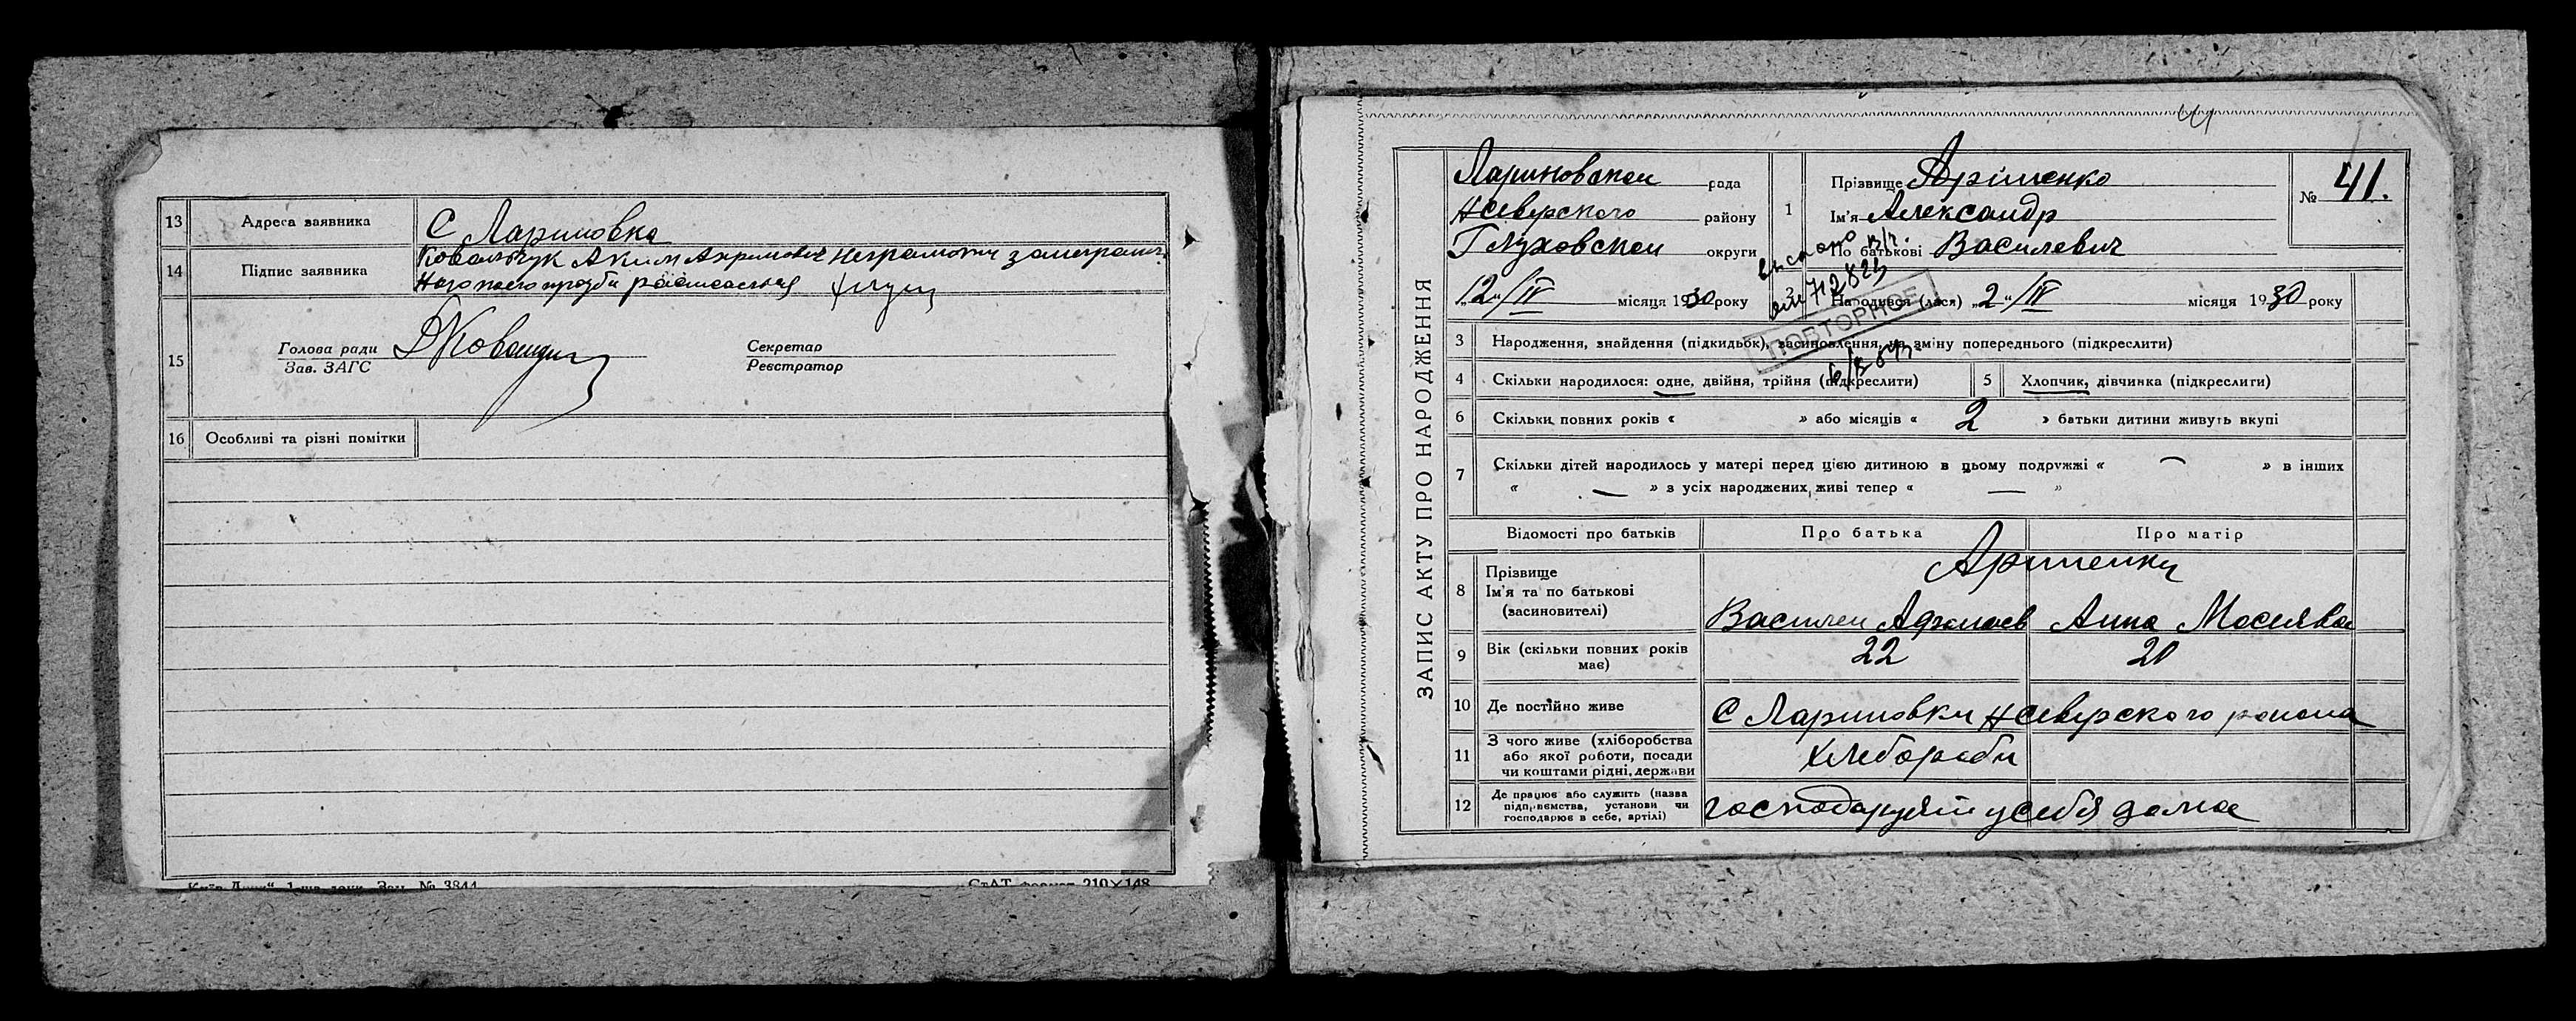 13 Адреса заявника С Лариновка
14 Підпис заявника Ковальчук Аким неграмотен за неграмот
ного его прозьби расписался
15 Голова ради Секретар
Зав. ЗАГС Реєстратор
16 Особливі та різні помітки
№ 3844
СтАТ формат 210×148
ЗАПИС АКТУ ПРО НАРОДЖЕННЯ
Лариновской рада
НСеверского району
Глуховской округи
„12“/IV місяця 1930 року
1 Прізвище Ярошенко
Ім'я Александр
По батькові Василевич
№ 41.
2 Народився (лася) „2“/IV місяця 1930 року
выдано п/т.
712823
ПОВТОРНОЕ
3 Народження, знайдення (підкидьок), засиновлення, на зміну попереднього (підкреслити)
4 Скільки народилося: одне, двійня, трійня (підкреслити) 5 Хлопчик, дівчинка (підкреслити)
6 Скільки повних років « » або місяців « 2 » батьки дитини живуть вкупі
7 Скільки дітей народилось у матері перед цією дитиною в цьому подружжі « — » в інших
« — » з усіх народжених, живі тепер « — »
Відомості про батьків Про батька Про матір
8 Прізвище
Ім'я та по батькові
(засиновителі)
Василей Анна
9 Вік (скільки повних років має) 22 20
10 Де постійно живе С Лариновки НСеверского района
11 З чого живе (хліборобства
або якої роботи, посади
чи коштами рідні, держави
Хлебороби
12 Де працює або служить (назва
підприємства, установи чи
господарює в себе, артілі)
господарують у себя дома